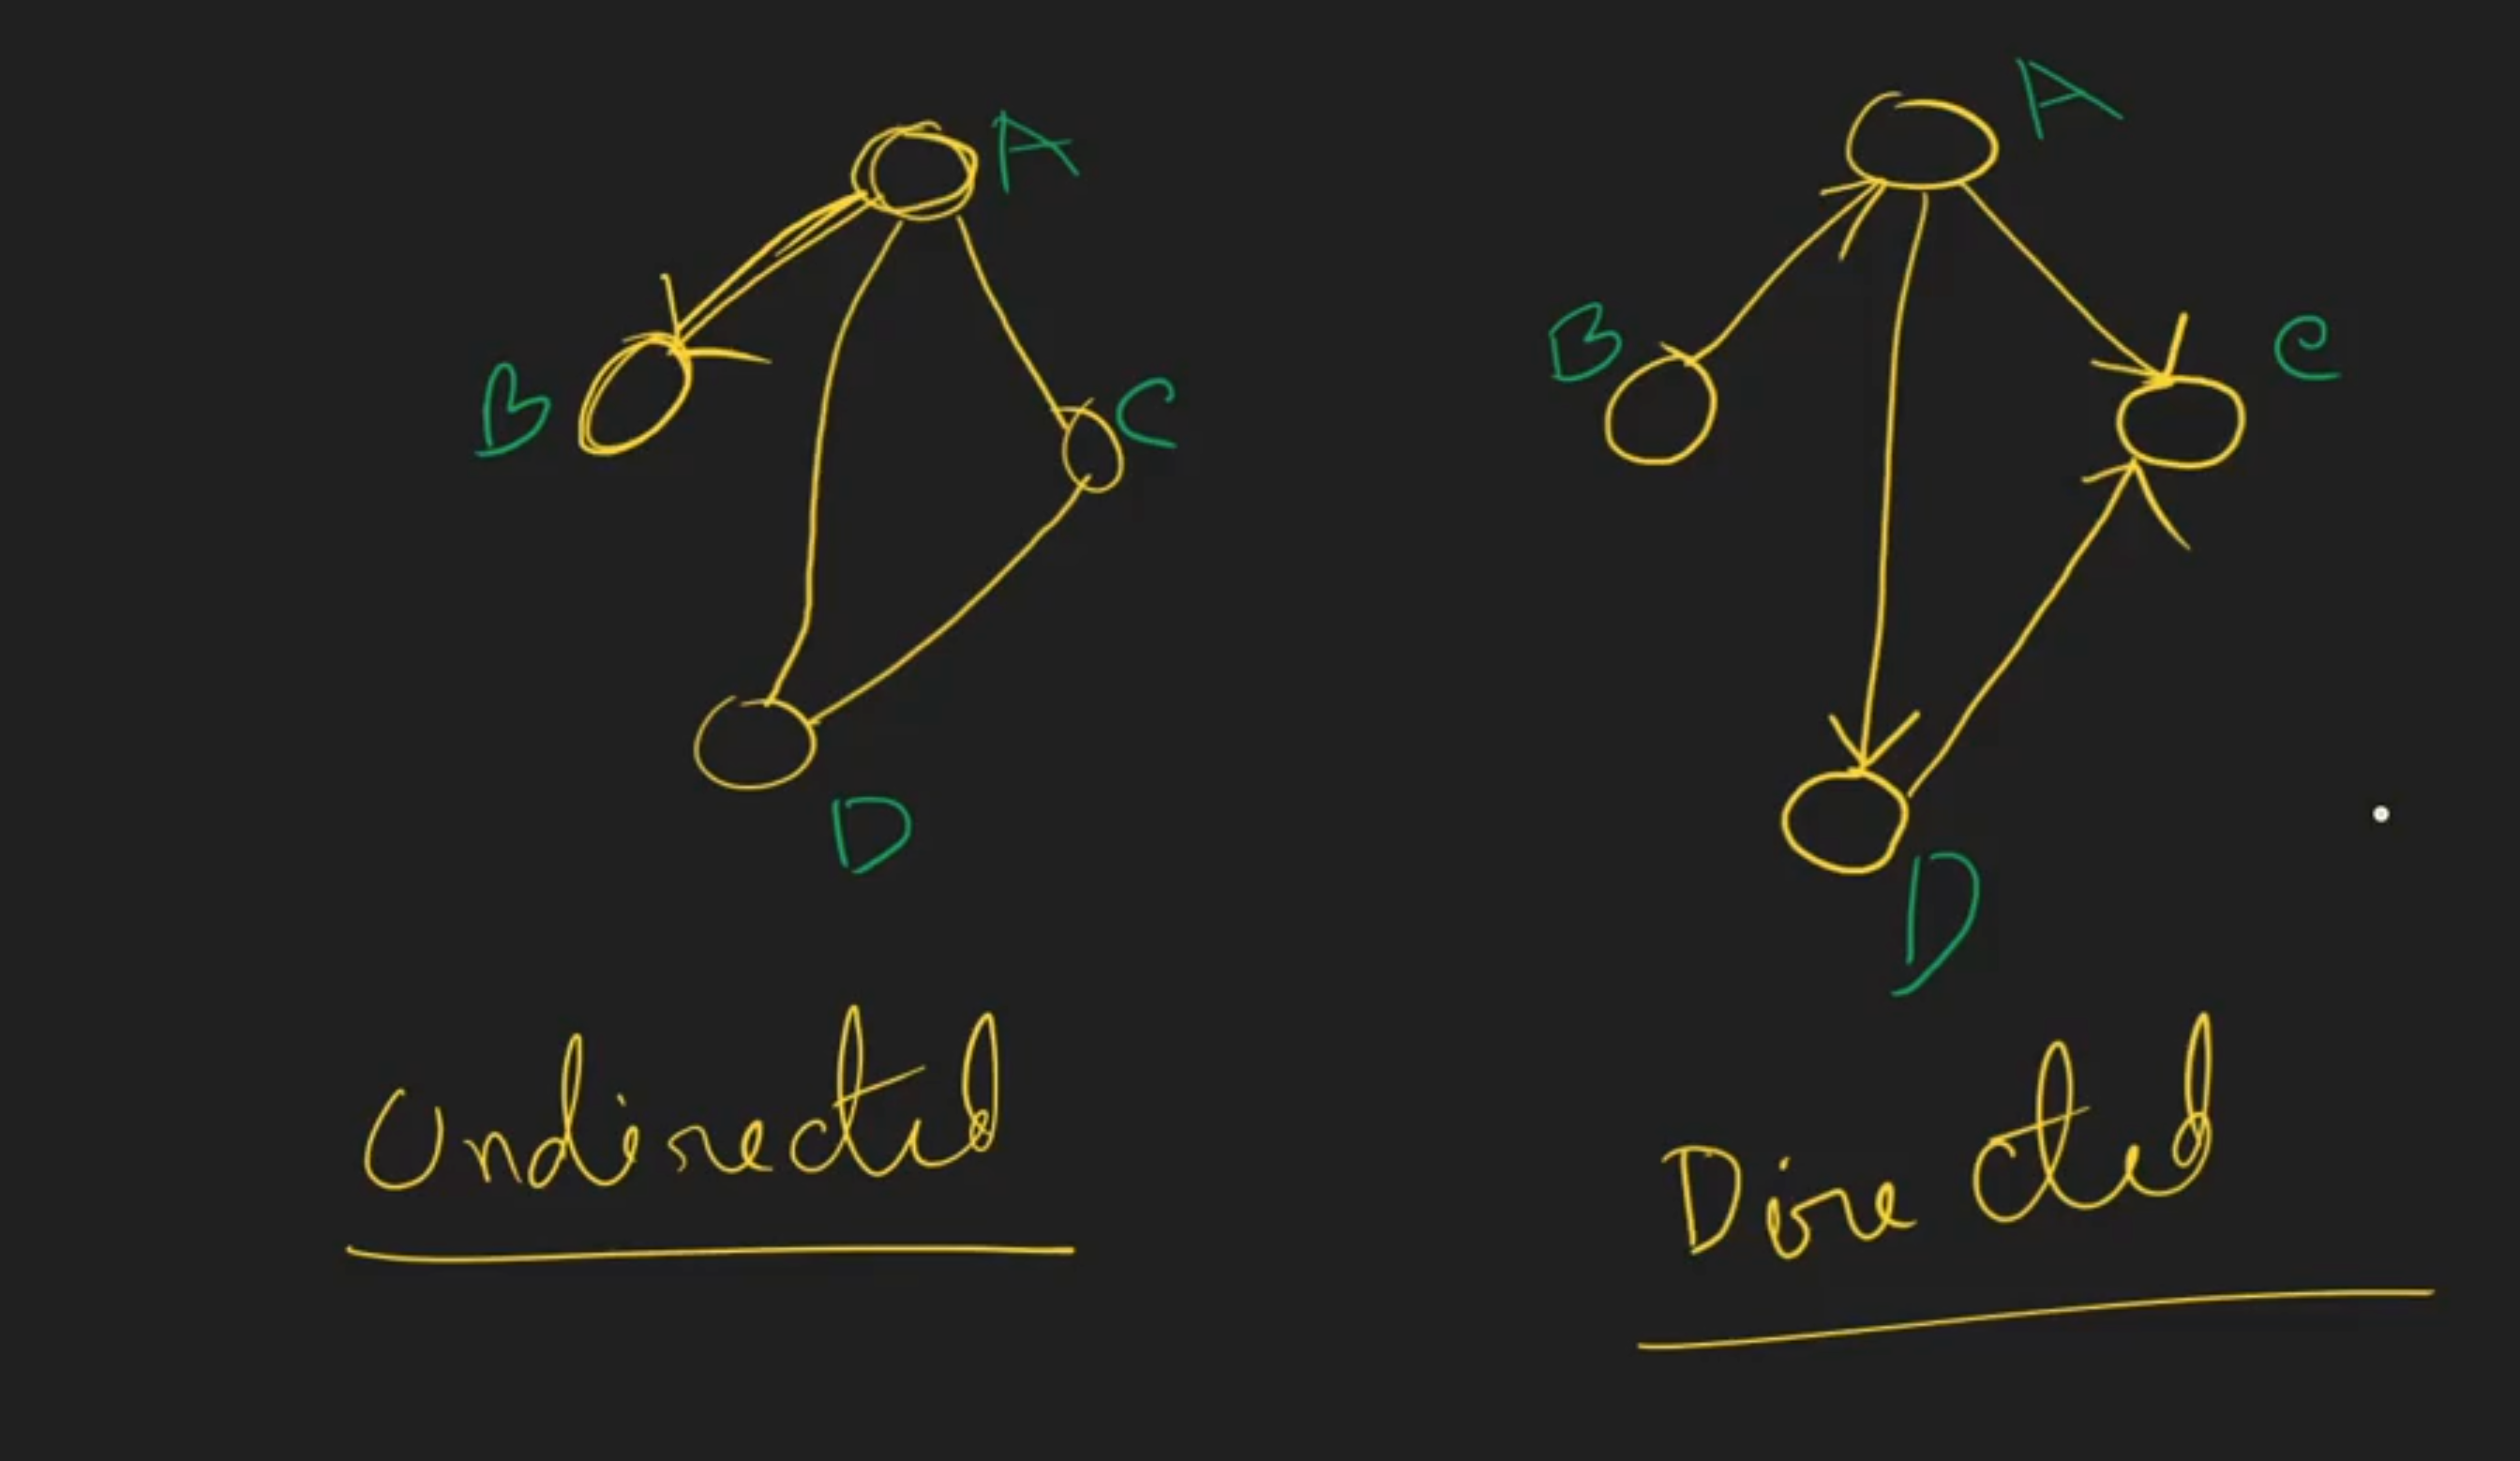 A
B
C
D
Undirected
A
B
C
D
Directed